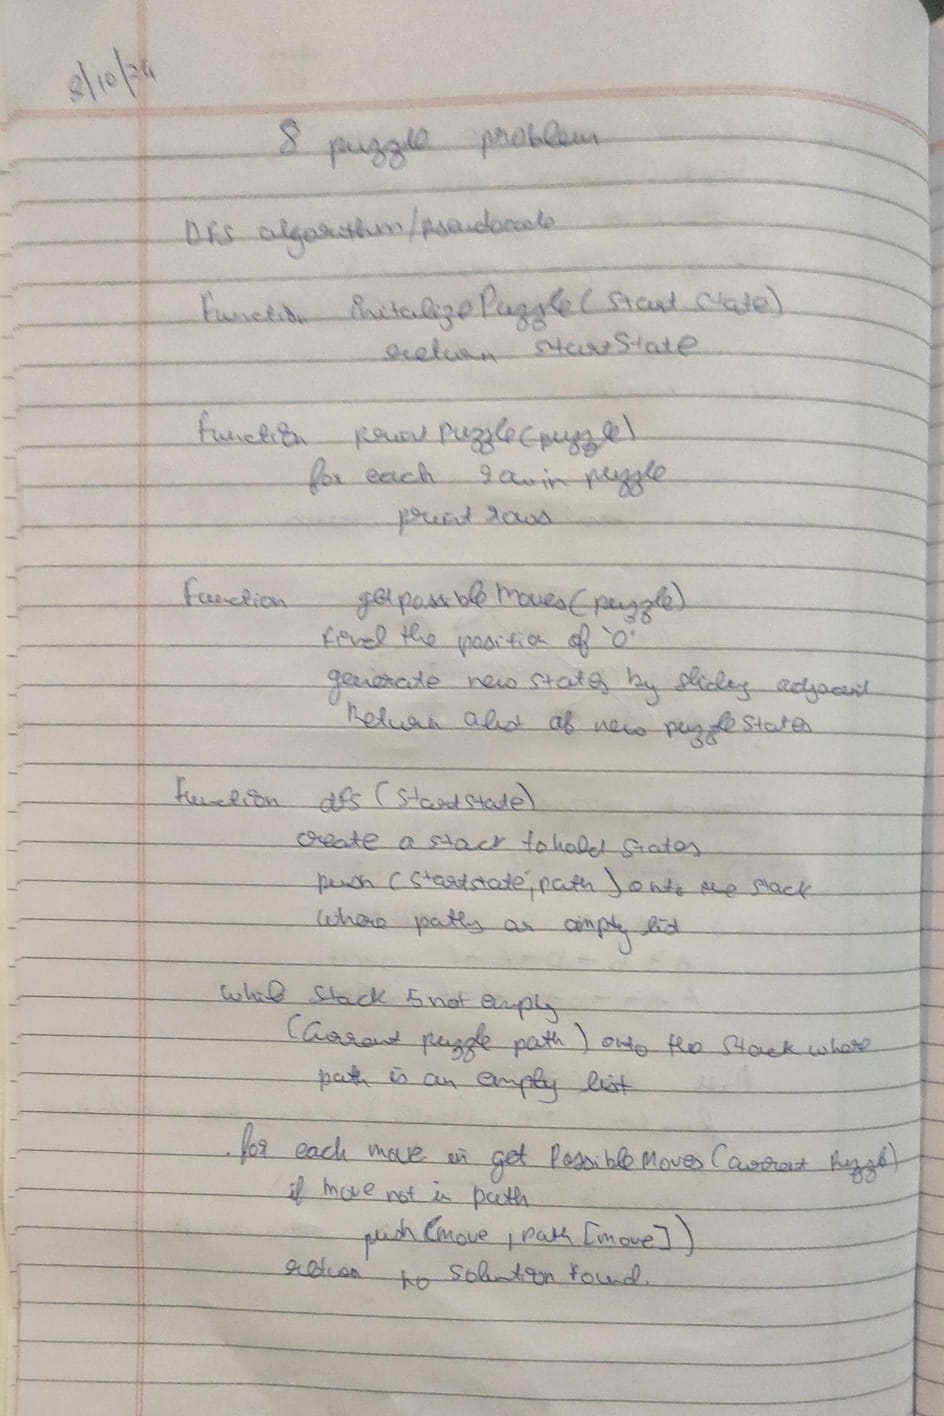 8/10/24
8 puzzle problem
DFS algorithm/pseudocode
Function InitalizePuzzle (Start State)
return startState
function print Puzzle (puzzle)
for each row in puzzle
print rows
function getpossible Moves (puzzle)
Find the position of '0'
generate new states by sliding adjacent
Return a list of new puzzle states
Function dfs (Start state)
create a stack to hold states
push (Start state, path) onto the stack
where path as empty list
while stack is not empty
(Current puzzle path) onto the stack where
path is an empty list
for each move in get Possible Moves (current Puzzle)
if move not in path
push (move, path [move])
return no solution found.